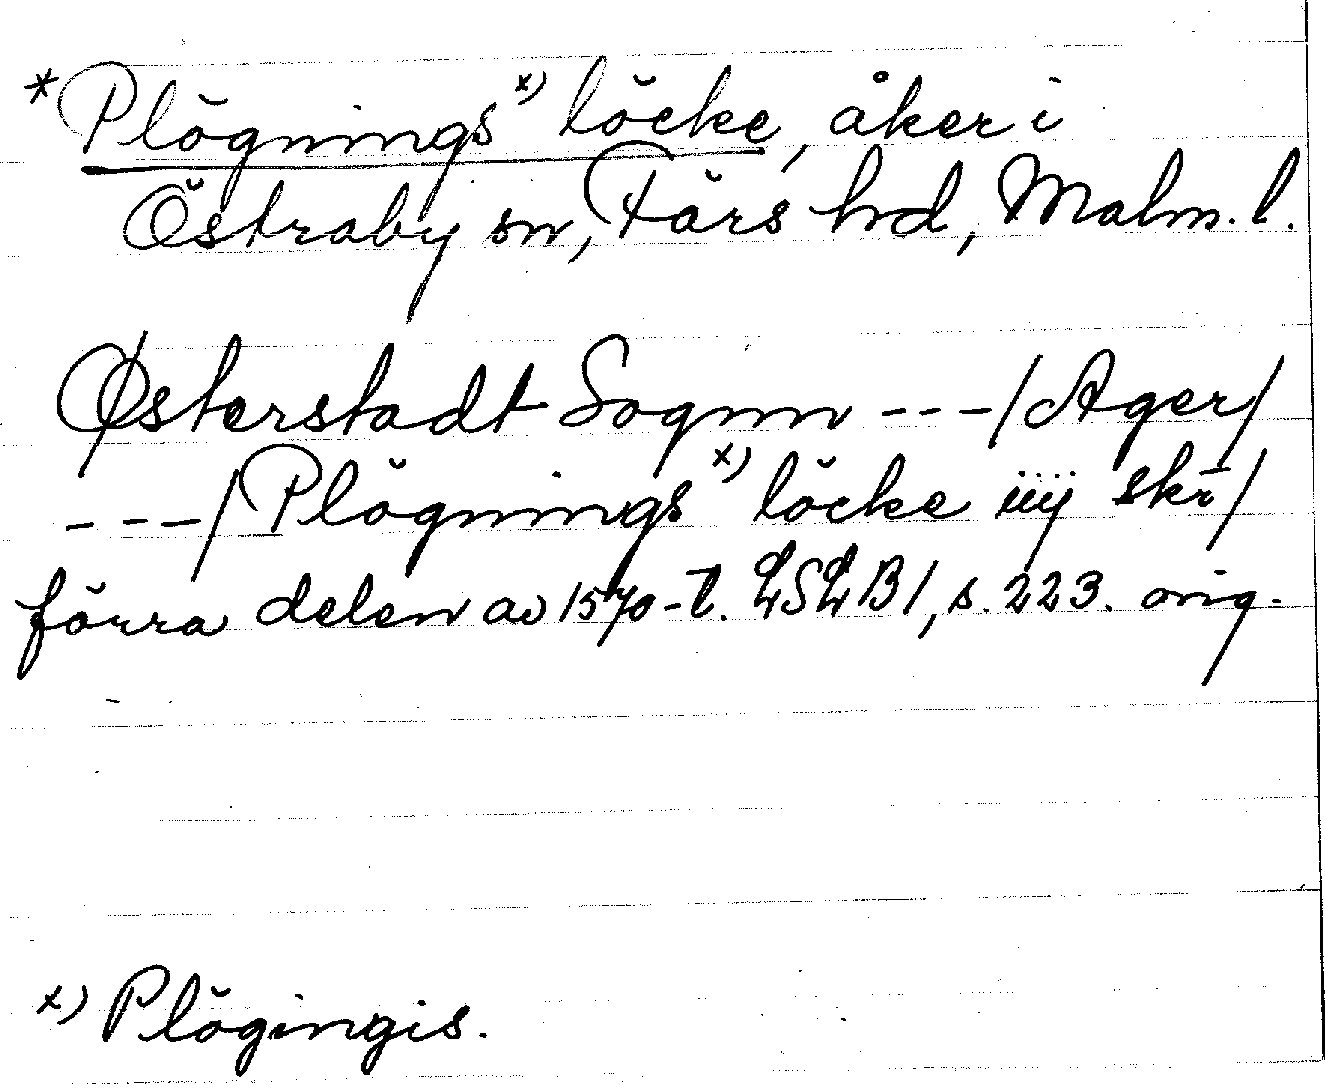 * Plögnings x) löcke, åker i
Östraby sn, Färs hd, Malm. l.
Østerstadt Sognn --- / Ager /
--- / Plögnings x) löcke iiij skr̄ /
förra delen av 1570-t. LSLB1, s. 223. orig.
x) Plögingis.